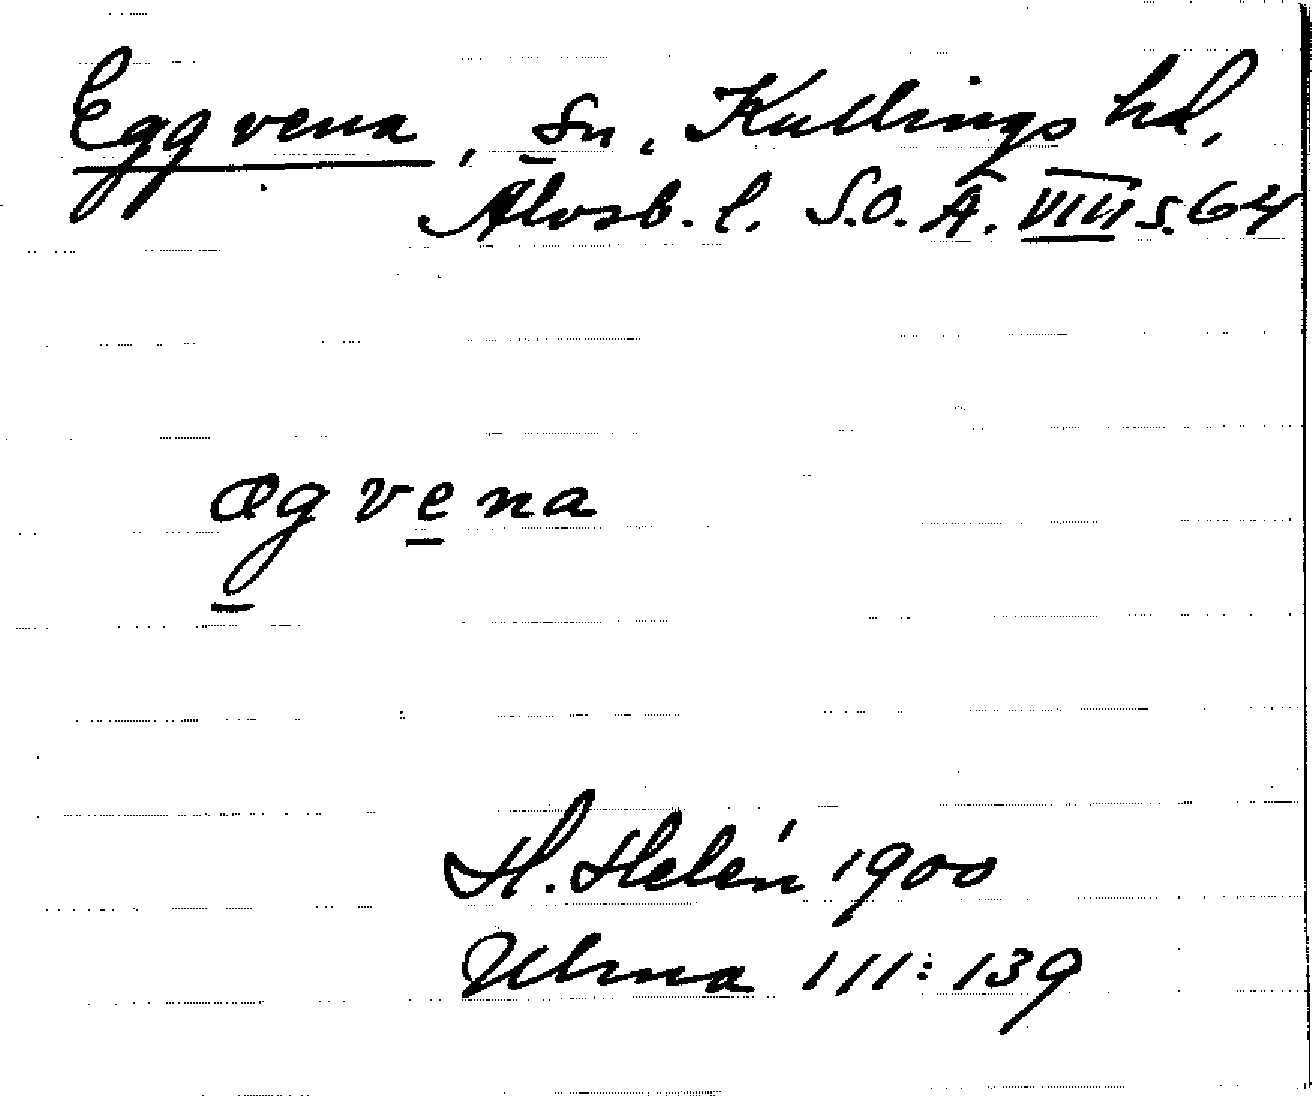 Eggvena, Sn, Kullings hd,
Älvsb. l. S.O.Ä. VIII s. 64
ægvena
H. Helén 1900
Ulma 111:139